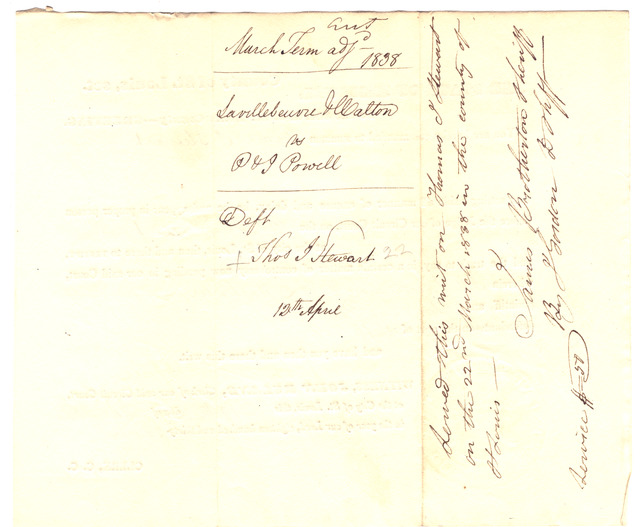 March Term adjd
1838
Lavillebeuvre & Walton
vs
P & J Powell
Deft
+ Thos J Stewart 22
12th April
Served this writ on Thomas J Stewart
on the 22nd March 1838 in the county of
St Louis —
James Brotherton Sheriff
By Gordon D Shff
Service $-50